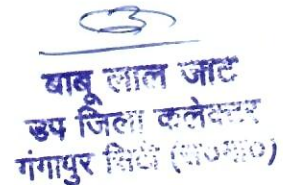 बाबू लाल जाट
उप जिला कलेक्टर
गंगापुर सिटी (स०मा०)